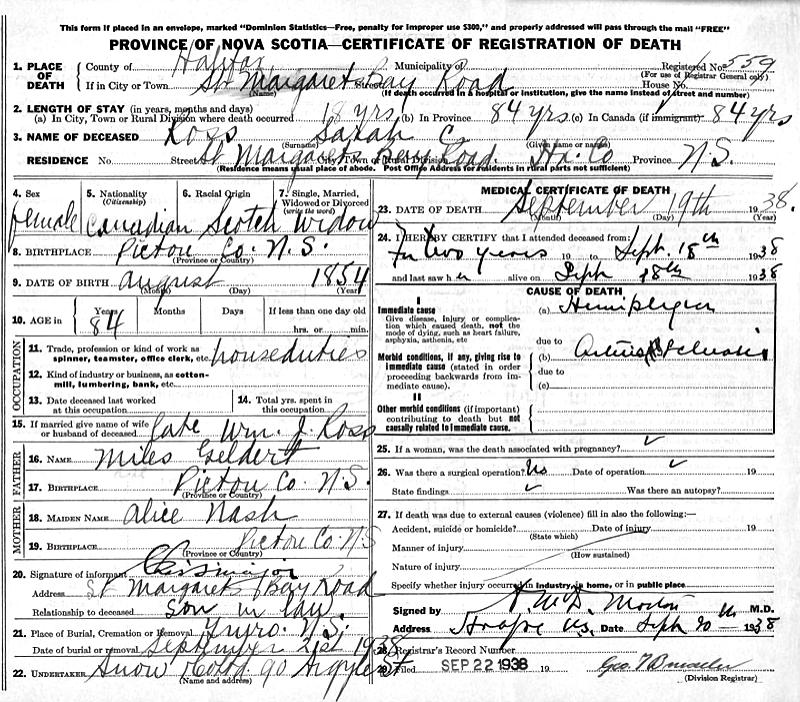 This form if placed in an envelope, marked "Dominion Statistics—Free, penalty for improper use $300," and properly addressed will pass through the mail "FREE"
PROVINCE OF NOVA SCOTIA—CERTIFICATE OF REGISTRATION OF DEATH
1. PLACE OF DEATH County of Halifax Municipality of Registered No. 559
(For use of Registrar General only)
If in City or Town St Margarets Bay Road Street House No.
(Name) (If death occurred in a hospital or institution, give the name instead of street and number)
2. LENGTH OF STAY (in years, months and days)
(a) In City, Town or Rural Division where death occurred 18 yrs (b) In Province 84 yrs. (c) In Canada (if immigrant) 84 yrs
3. NAME OF DECEASED Ross Sarah C.
(Surname) (Given name or names)
RESIDENCE No. Street St Margarets Bay Road. City, Town or Rural Division Hx. Co Province N.S.
(Residence means usual place of abode. Post Office Address for residents in rural parts not sufficient)
4. Sex female
5. Nationality (Citizenship) Canadian
6. Racial Origin Scotch
7. Single, Married, Widowed or Divorced (write the word) Widow
8. BIRTHPLACE Pictou Co. N.S.
(Province or Country)
9. DATE OF BIRTH august 1854
(Month) (Day) (Year)
10. AGE in Years 84 Months Days If less than one day old
hrs. or min.
OCCUPATION
11. Trade, profession or kind of work as spinner, teamster, office clerk, etc. houseduties
12. Kind of industry or business, as cotton-mill, lumbering, bank, etc.
13. Date deceased last worked at this occupation
14. Total yrs. spent in this occupation
15. If married give name of wife or husband of deceased late Wm. J. Ross
FATHER
16. NAME Miles Geldert
17. BIRTHPLACE Pictou Co. N.S.
(Province or Country)
MOTHER
18. MAIDEN NAME Alice Nash
19. BIRTHPLACE Pictou Co. N.S
(Province or Country)
20. Signature of informant
Address St Margarets Bay Road
Relationship to deceased Son in law.
21. Place of Burial, Cremation or Removal Truro. N.S.
Date of burial or removal September 21st 1938
22. UNDERTAKER Snow 90 Argyle St
(Name and address)
MEDICAL CERTIFICATE OF DEATH
23. DATE OF DEATH September 19th 1938.
(Month) (Day) (Year)
24. I HEREBY CERTIFY that I attended deceased from:
For two years 19 to Sept. 18th 1938
and last saw her alive on Sept 18th 1938
CAUSE OF DEATH
I
Immediate cause (a) Hemiplegia
Give disease, injury or complication which caused death, not the mode of dying, such as heart failure, asphyxia, asthenia, etc
due to
Morbid conditions, if any, giving rise to immediate cause (stated in order proceeding backwards from immediate cause). (b)
due to
(c)
II
Other morbid conditions (if important) contributing to death but not causally related to immediate cause.
25. If a woman, was the death associated with pregnancy?
26. Was there a surgical operation? No Date of operation 19
State findings Was there an autopsy?
27. If death was due to external causes (violence) fill in also the following:
Accident, suicide or homicide? Date of injury 19
(State which)
Manner of injury
(How sustained)
Nature of injury
Specify whether injury occurred in industry, in home, or in public place
Signed by Morton M.D.
Address N.S. Date Sept 20th 1938
28. Registrar's Record Number
29. Filed SEP 22 1938 19
(Division Registrar)